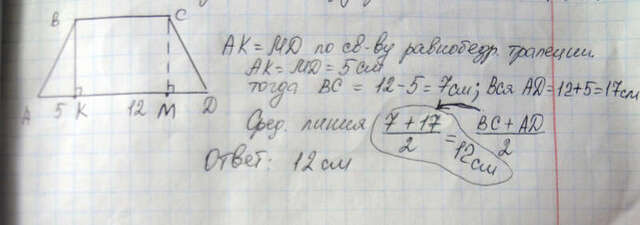 B C
A 5 K 12 M D
AK = MD по св-ву равнобедр. трапеции
AK = MD = 5 см
тогда BC = 12 - 5 = 7 см; Вся AD = 12 + 5 = 17 см
Сред. линия 7 + 17 / 2 = 12 см BC + AD / 2
Ответ: 12 см